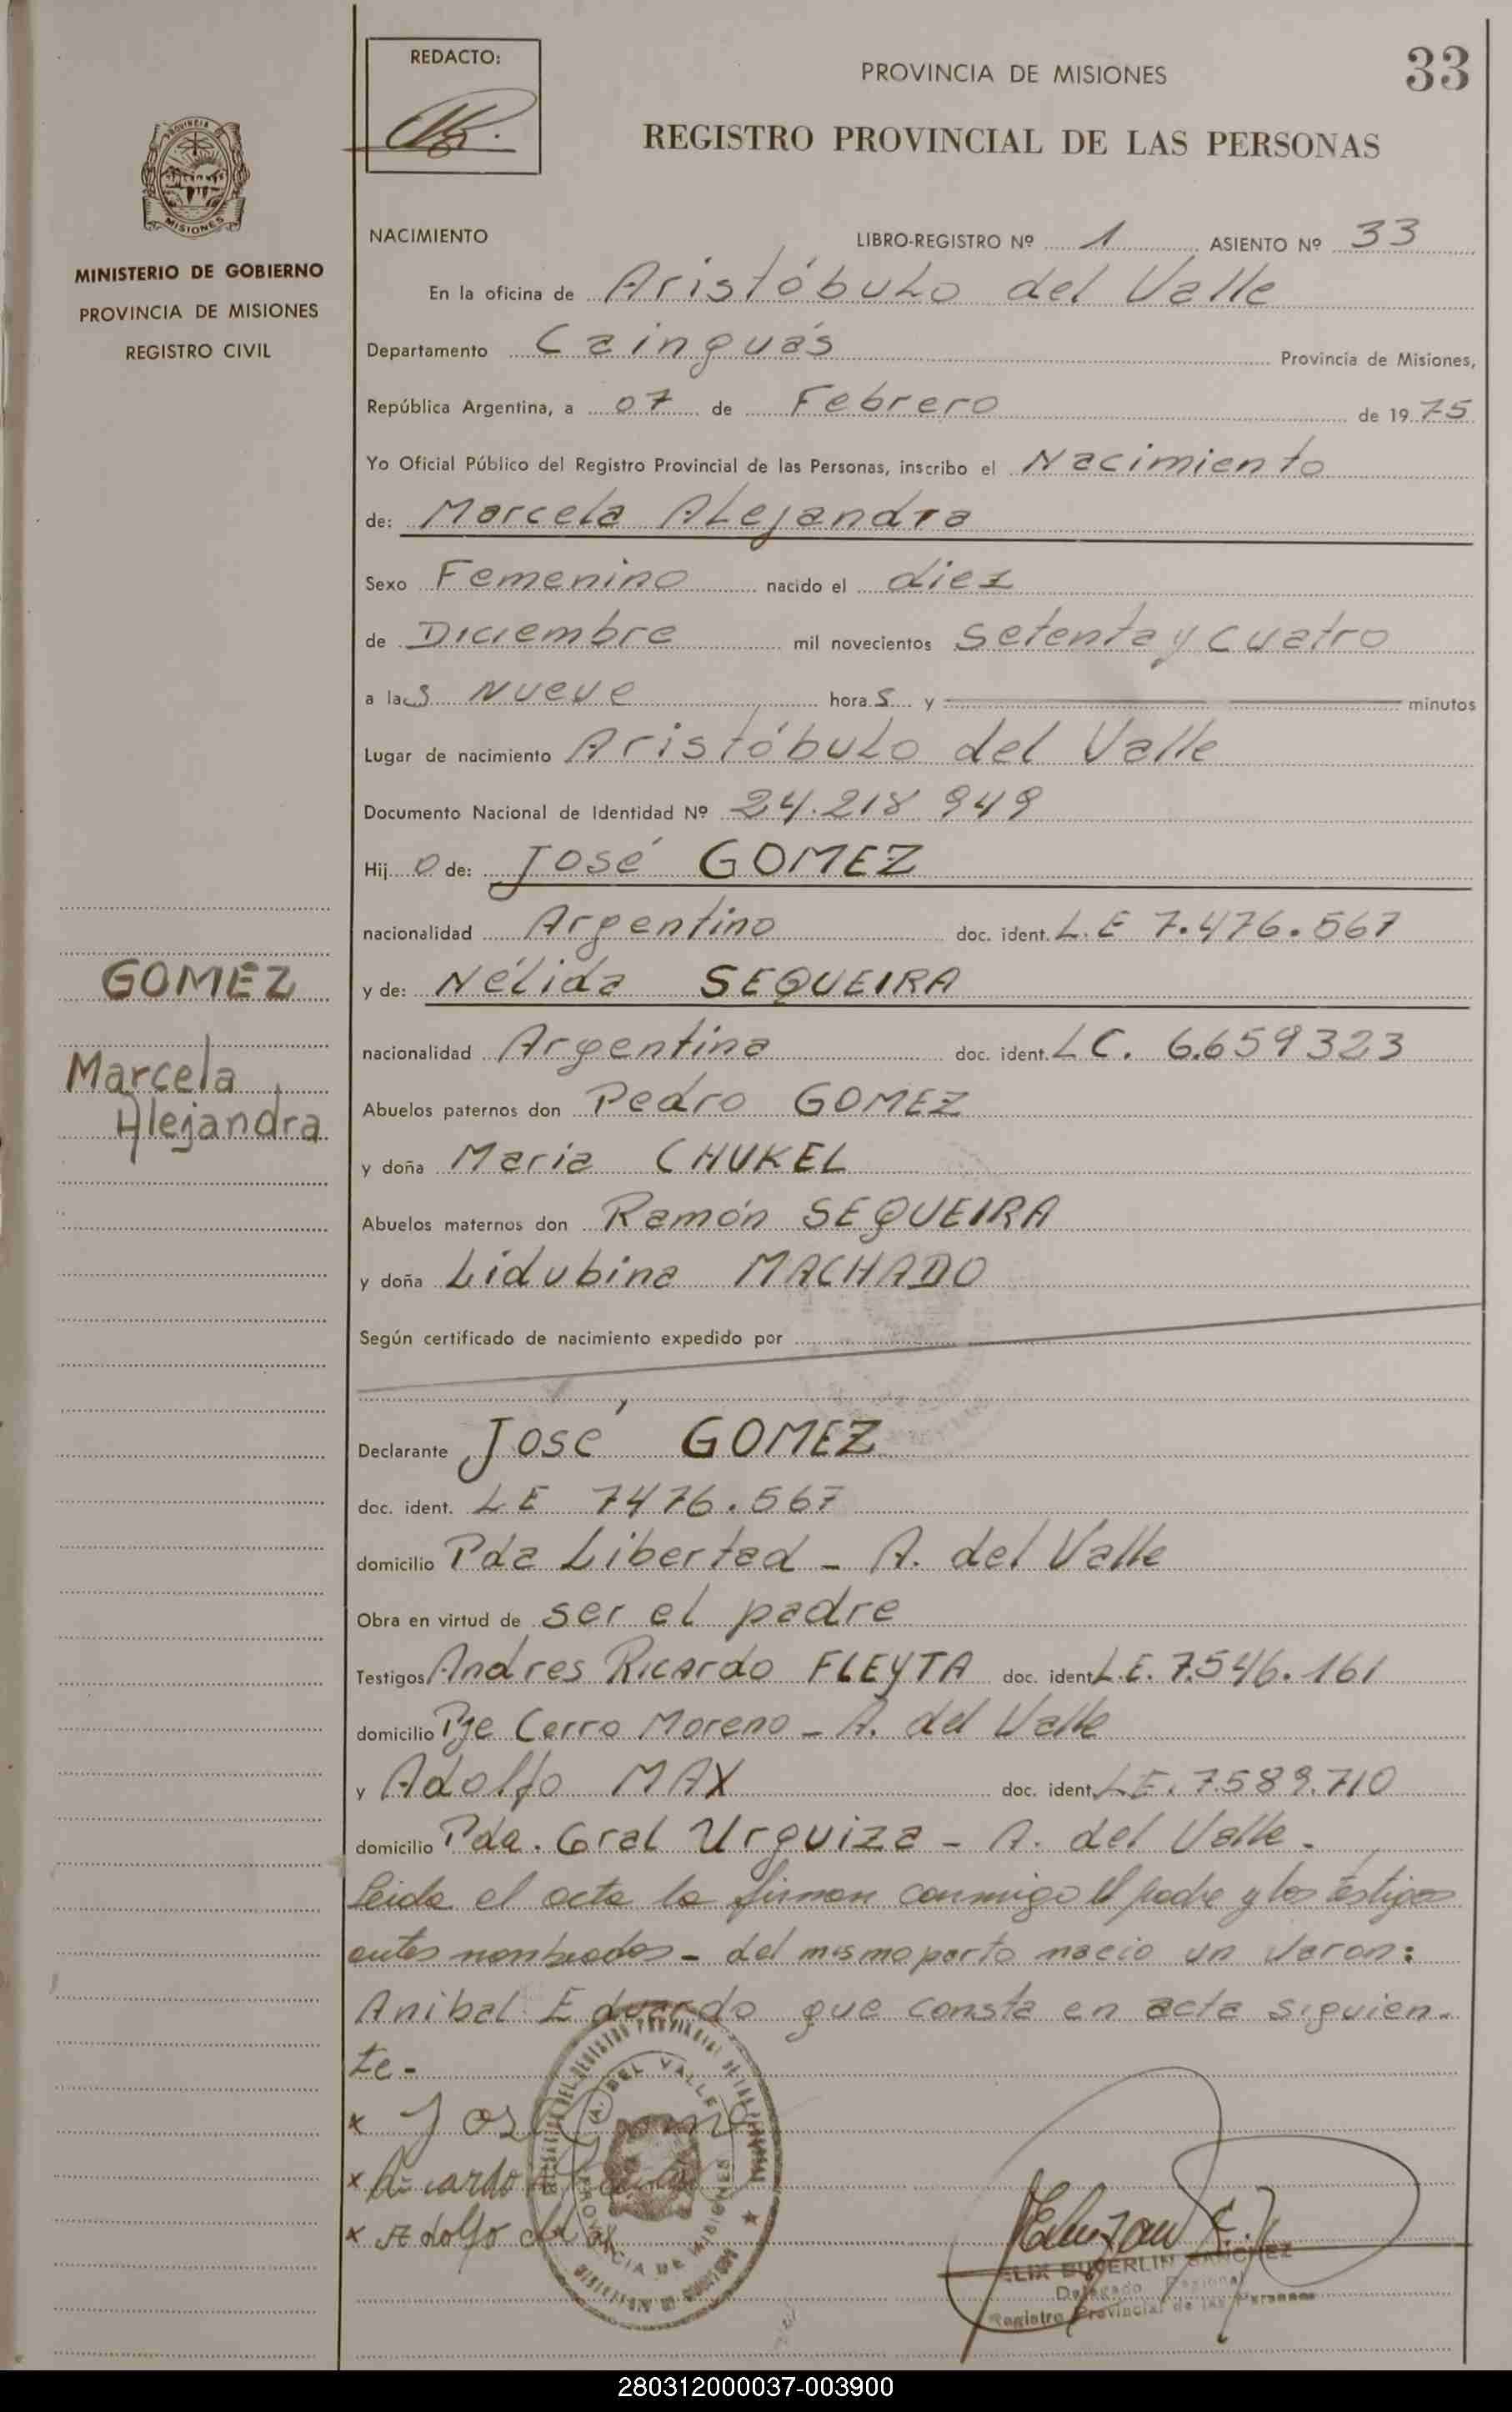 REDACTO:
PROVINCIA DE MISIONES
33
REGISTRO PROVINCIAL DE LAS PERSONAS
PROVINCIA
MISIONES
MINISTERIO DE GOBIERNO
PROVINCIA DE MISIONES
REGISTRO CIVIL
NACIMIENTO
LIBRO-REGISTRO Nº 1 ASIENTO Nº 33
En la oficina de Aristóbulo del Valle
Departamento Cainguás Provincia de Misiones,
República Argentina, a 07 de Febrero de 1975
Yo Oficial Público del Registro Provincial de las Personas, inscribo el Nacimiento
de: Marcela Alejandra
Sexo Femenino nacido el diez
de Diciembre mil novecientos setenta y cuatro
a las Nueve horas y minutos
Lugar de nacimiento Aristóbulo del Valle
Documento Nacional de Identidad Nº 24.218.949
Hijo de: José GOMEZ
nacionalidad Argentino doc. ident. L.E 7.476.567
GOMEZ
Marcela
Alejandra
y de: Nélida SEQUEIRA
nacionalidad Argentina doc. ident. LC. 6.659323
Abuelos paternos don Pedro GOMEZ
y doña Maria CHUKEL
Abuelos maternos don Ramón SEQUEIRA
y doña Lidubina MACHADO
Según certificado de nacimiento expedido por
Declarante José GOMEZ
doc. ident. LE 7476.567
domicilio Pda Libertad - A. del Valle
Obra en virtud de ser el padre
Testigos Andres Ricardo FLEYTA doc. ident. L.E. 7.546.161
domicilio Pje Cerro Moreno - A. del Valle
y Adolfo MAX doc. ident. L.E. 7.589.710
domicilio Pda. Gral Urquiza - A. del Valle.
Leida el acta la firman conmigo el padre y los testigos
antes nombrados - del mismo parto nacio un varon:
Anibal Eduardo que consta en acta siguien-
te-
x José
x Ricardo
x Adolfo
A. DEL VALLE
PROVINCIA DE MISIONES
SANCHEZ
Delegado Regional
Registro Provincial de las Personas
280312000037-003900